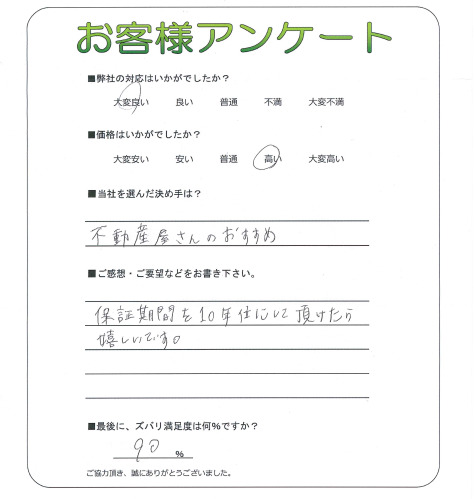 お客様アンケート
■弊社の対応はいかがでしたか？
大変良い 良い 普通 不満 大変不満
■価格はいかがでしたか？
大変安い 安い 普通 高い 大変高い
■当社を選んだ決め手は？
不動産屋さんのおすすめ
■ご感想・ご要望などをお書き下さい。
保証期間を10年位にして頂けたら
嬉しいです。
■最後に、ズバリ満足度は何％ですか？
90 %
ご協力頂き、誠にありがとうございました。